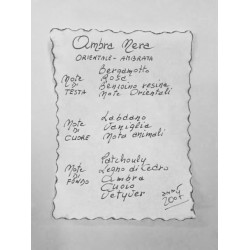 Ambra Nera
ORIENTALE - AMBRATA
NOTE DI TESTA
Bergamotto
Rose
Benzoino resina
Note Orientali
NOTE DI CUORE
Labdano
Vaniglia
Note animali
NOTE DI FONDO
Patchouly
Legno di Cedro
Ambra
Cuoio
Vetyver
2005